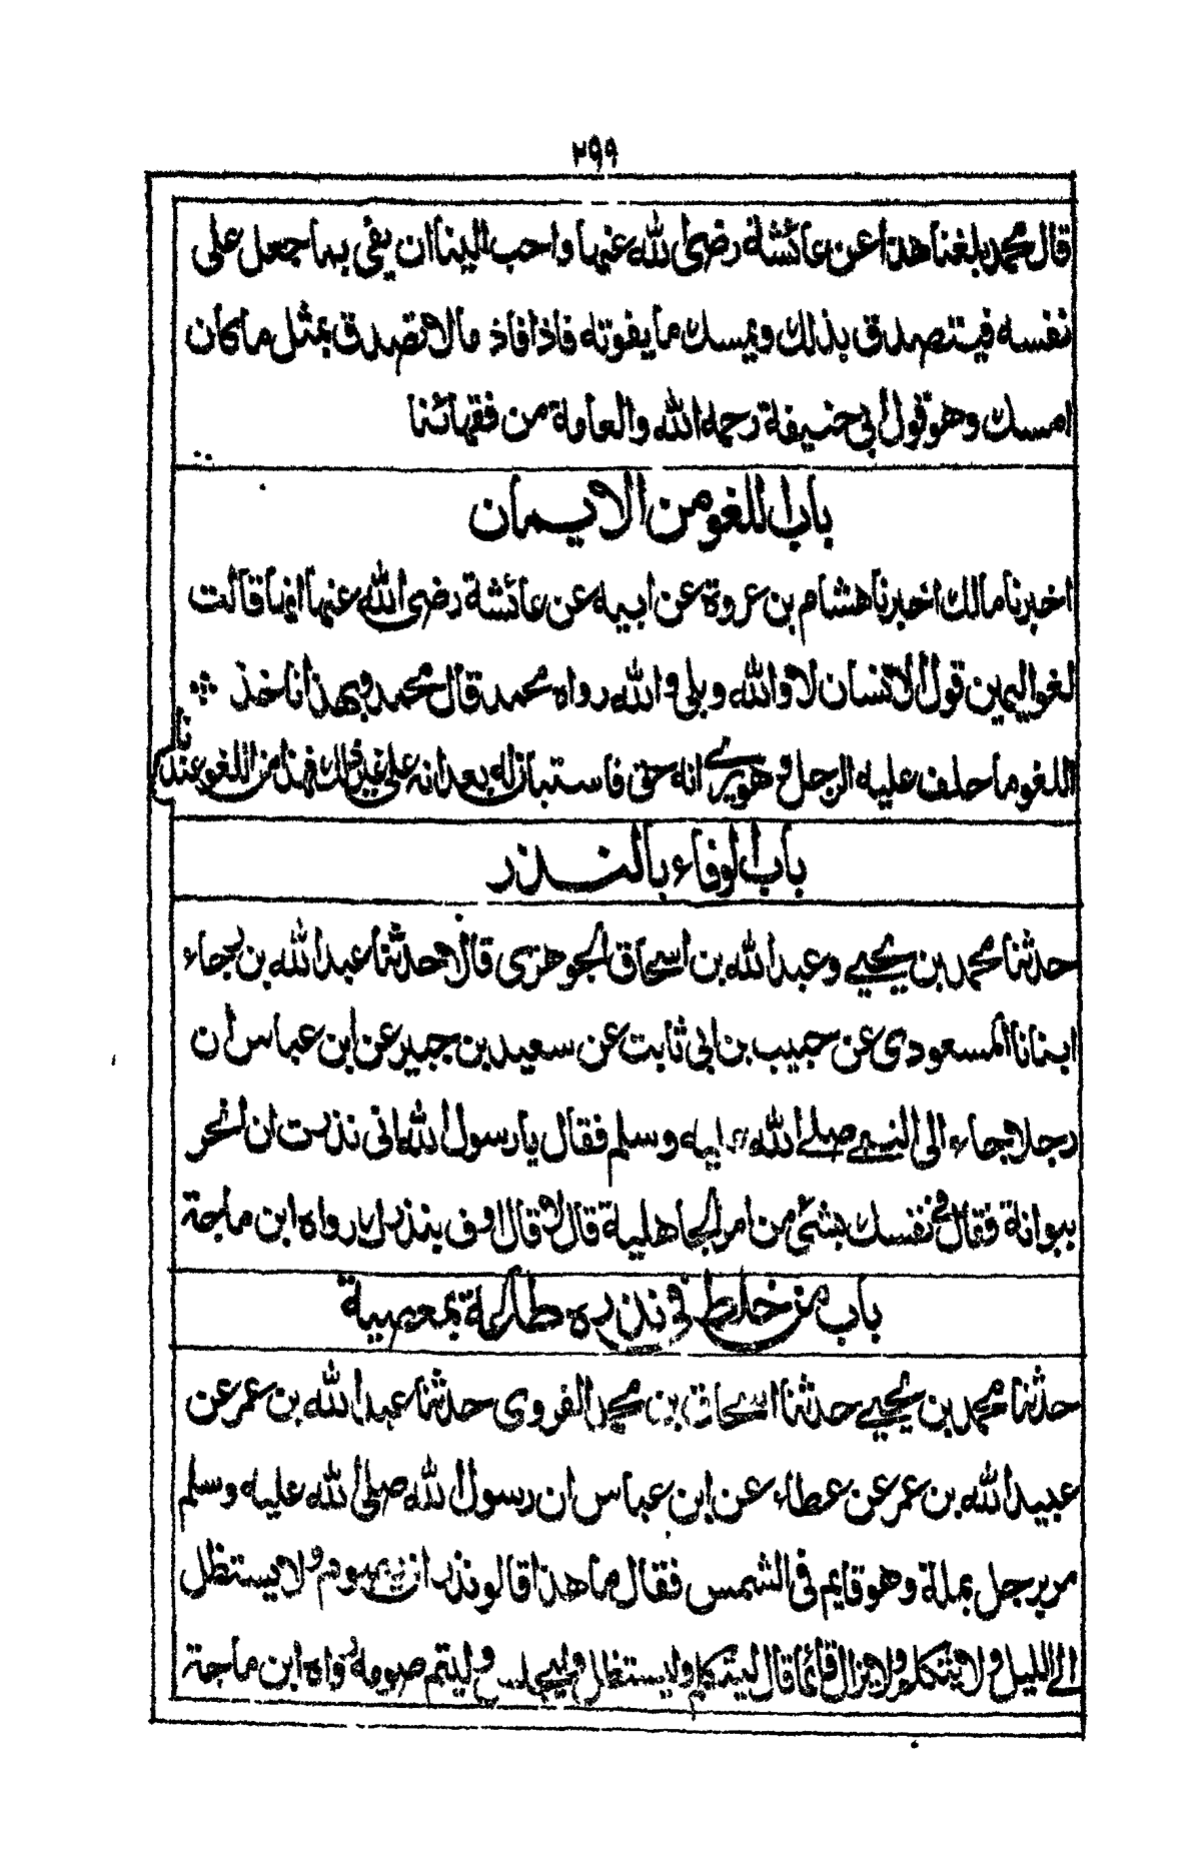 ٢٩٩
قال محمد بلغنا هذا عن عائشة رضى الله عنها واحب الينا ان يفى بما جعل على
نفسه فيتصدق بذلك ويمسك ما يفوته فاذا افاذ مالا تصدق بمثل ما كان
امسك وهو قول ابى حنيفة رحمه الله والعامة من فقهائنا
باب اللغو من الايمان
اخبرنا مالك اخبرنا هشام بن عروة عن ابيه عن عائشة رضى الله عنها انها قالت
لغو اليمين قول الانسان لا والله وبلى والله رواه محمد قال محمد وبهذا ناخذ
اللغو ما حلف عليه الرجل وهو يرى انه حق فاستبان له بعد انه على غير ذلك فهذا من اللغو عندنا
باب الوفاء بالنذر
حدثنا محمد بن يحيى وعبد الله بن اسحاق الجوهرى قالا حدثنا عبد الله بن رجاء
انبانا المسعودى عن حبيب بن ابى ثابت عن سعيد بن جبير عن ابن عباس ان
رجلا جاء الى النبى صلى الله عليه وسلم فقال يا رسول الله انى نذرت ان انحر
ببوانة فقال فى نفسك بشئ من امر الجاهلية قال لا قال اوف بنذرك رواه ابن ماجة
باب من خلط فى نذره طاعة بمعصية
حدثنا محمد بن يحيى حدثنا اسحاق بن محمد الفروى حدثنا عبد الله بن عمر عن
عبيد الله بن عمر عن عطاء عن ابن عباس ان رسول الله صلى الله عليه وسلم
مر برجل بملة وهو قايم فى الشمس فقال ما هذا قالو نذر ان يصوم ولا يستظل
الى الليل ولا يتكلم ولا يزال قائما قال ليتكلم وليستظل وليجلس وليتم صومه رواه ابن ماجة